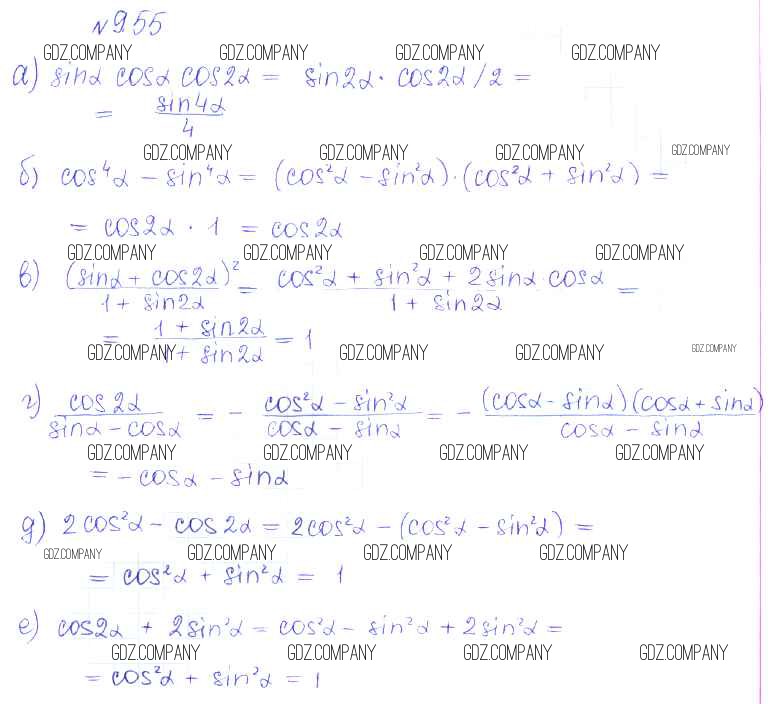 №955
GDZ.COMPANY GDZ.COMPANY GDZ.COMPANY GDZ.COMPANY
а) sinα cosα cos2α = sin2α · cos2α / 2 =
= sin4α / 4
GDZ.COMPANY GDZ.COMPANY GDZ.COMPANY GDZ.COMPANY
б) cos⁴α − sin⁴α = (cos²α − sin²α)·(cos²α + sin²α) =
= cos2α · 1 = cos2α
GDZ.COMPANY GDZ.COMPANY GDZ.COMPANY GDZ.COMPANY
в) (sinα + cos2α)² / 1 + sin2α = cos²α + sin²α + 2sinα·cosα / 1 + sin2α =
= 1 + sin2α / 1 + sin2α = 1
GDZ.COMPANY GDZ.COMPANY GDZ.COMPANY GDZ.COMPANY
г) cos2α / sinα − cosα = − cos²α − sin²α / cosα − sinα = − (cosα − sinα)(cosα + sinα) / cosα − sinα
GDZ.COMPANY GDZ.COMPANY GDZ.COMPANY GDZ.COMPANY
= − cosα − sinα
д) 2cos²α − cos2α = 2cos²α − (cos²α − sin²α) =
GDZ.COMPANY GDZ.COMPANY GDZ.COMPANY GDZ.COMPANY
= cos²α + sin²α = 1
е) cos2α + 2sin²α = cos²α − sin²α + 2sin²α =
GDZ.COMPANY GDZ.COMPANY GDZ.COMPANY GDZ.COMPANY
= cos²α + sin²α = 1